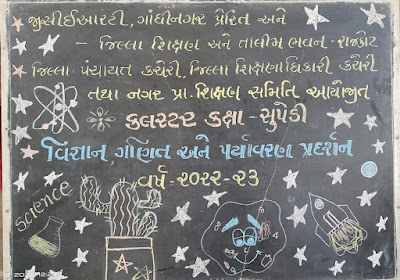 જીસીઈઆરટી, ગાંધીનગર પ્રેરિત અને
- જિલ્લા શિક્ષણ અને તાલીમ ભવન - રાજકોટ
જિલ્લા પંચાયત કચેરી, જિલ્લા શિક્ષણાધિકારી કચેરી
તથા નગર પ્રા. શિક્ષણ સમિતિ આયોજીત
ક્લસ્ટર કક્ષા - સુપેડી
વિજ્ઞાન ગણિત અને પર્યાવરણ પ્રદર્શન
વર્ષ - ૨૦૨૨-૨૩
Science